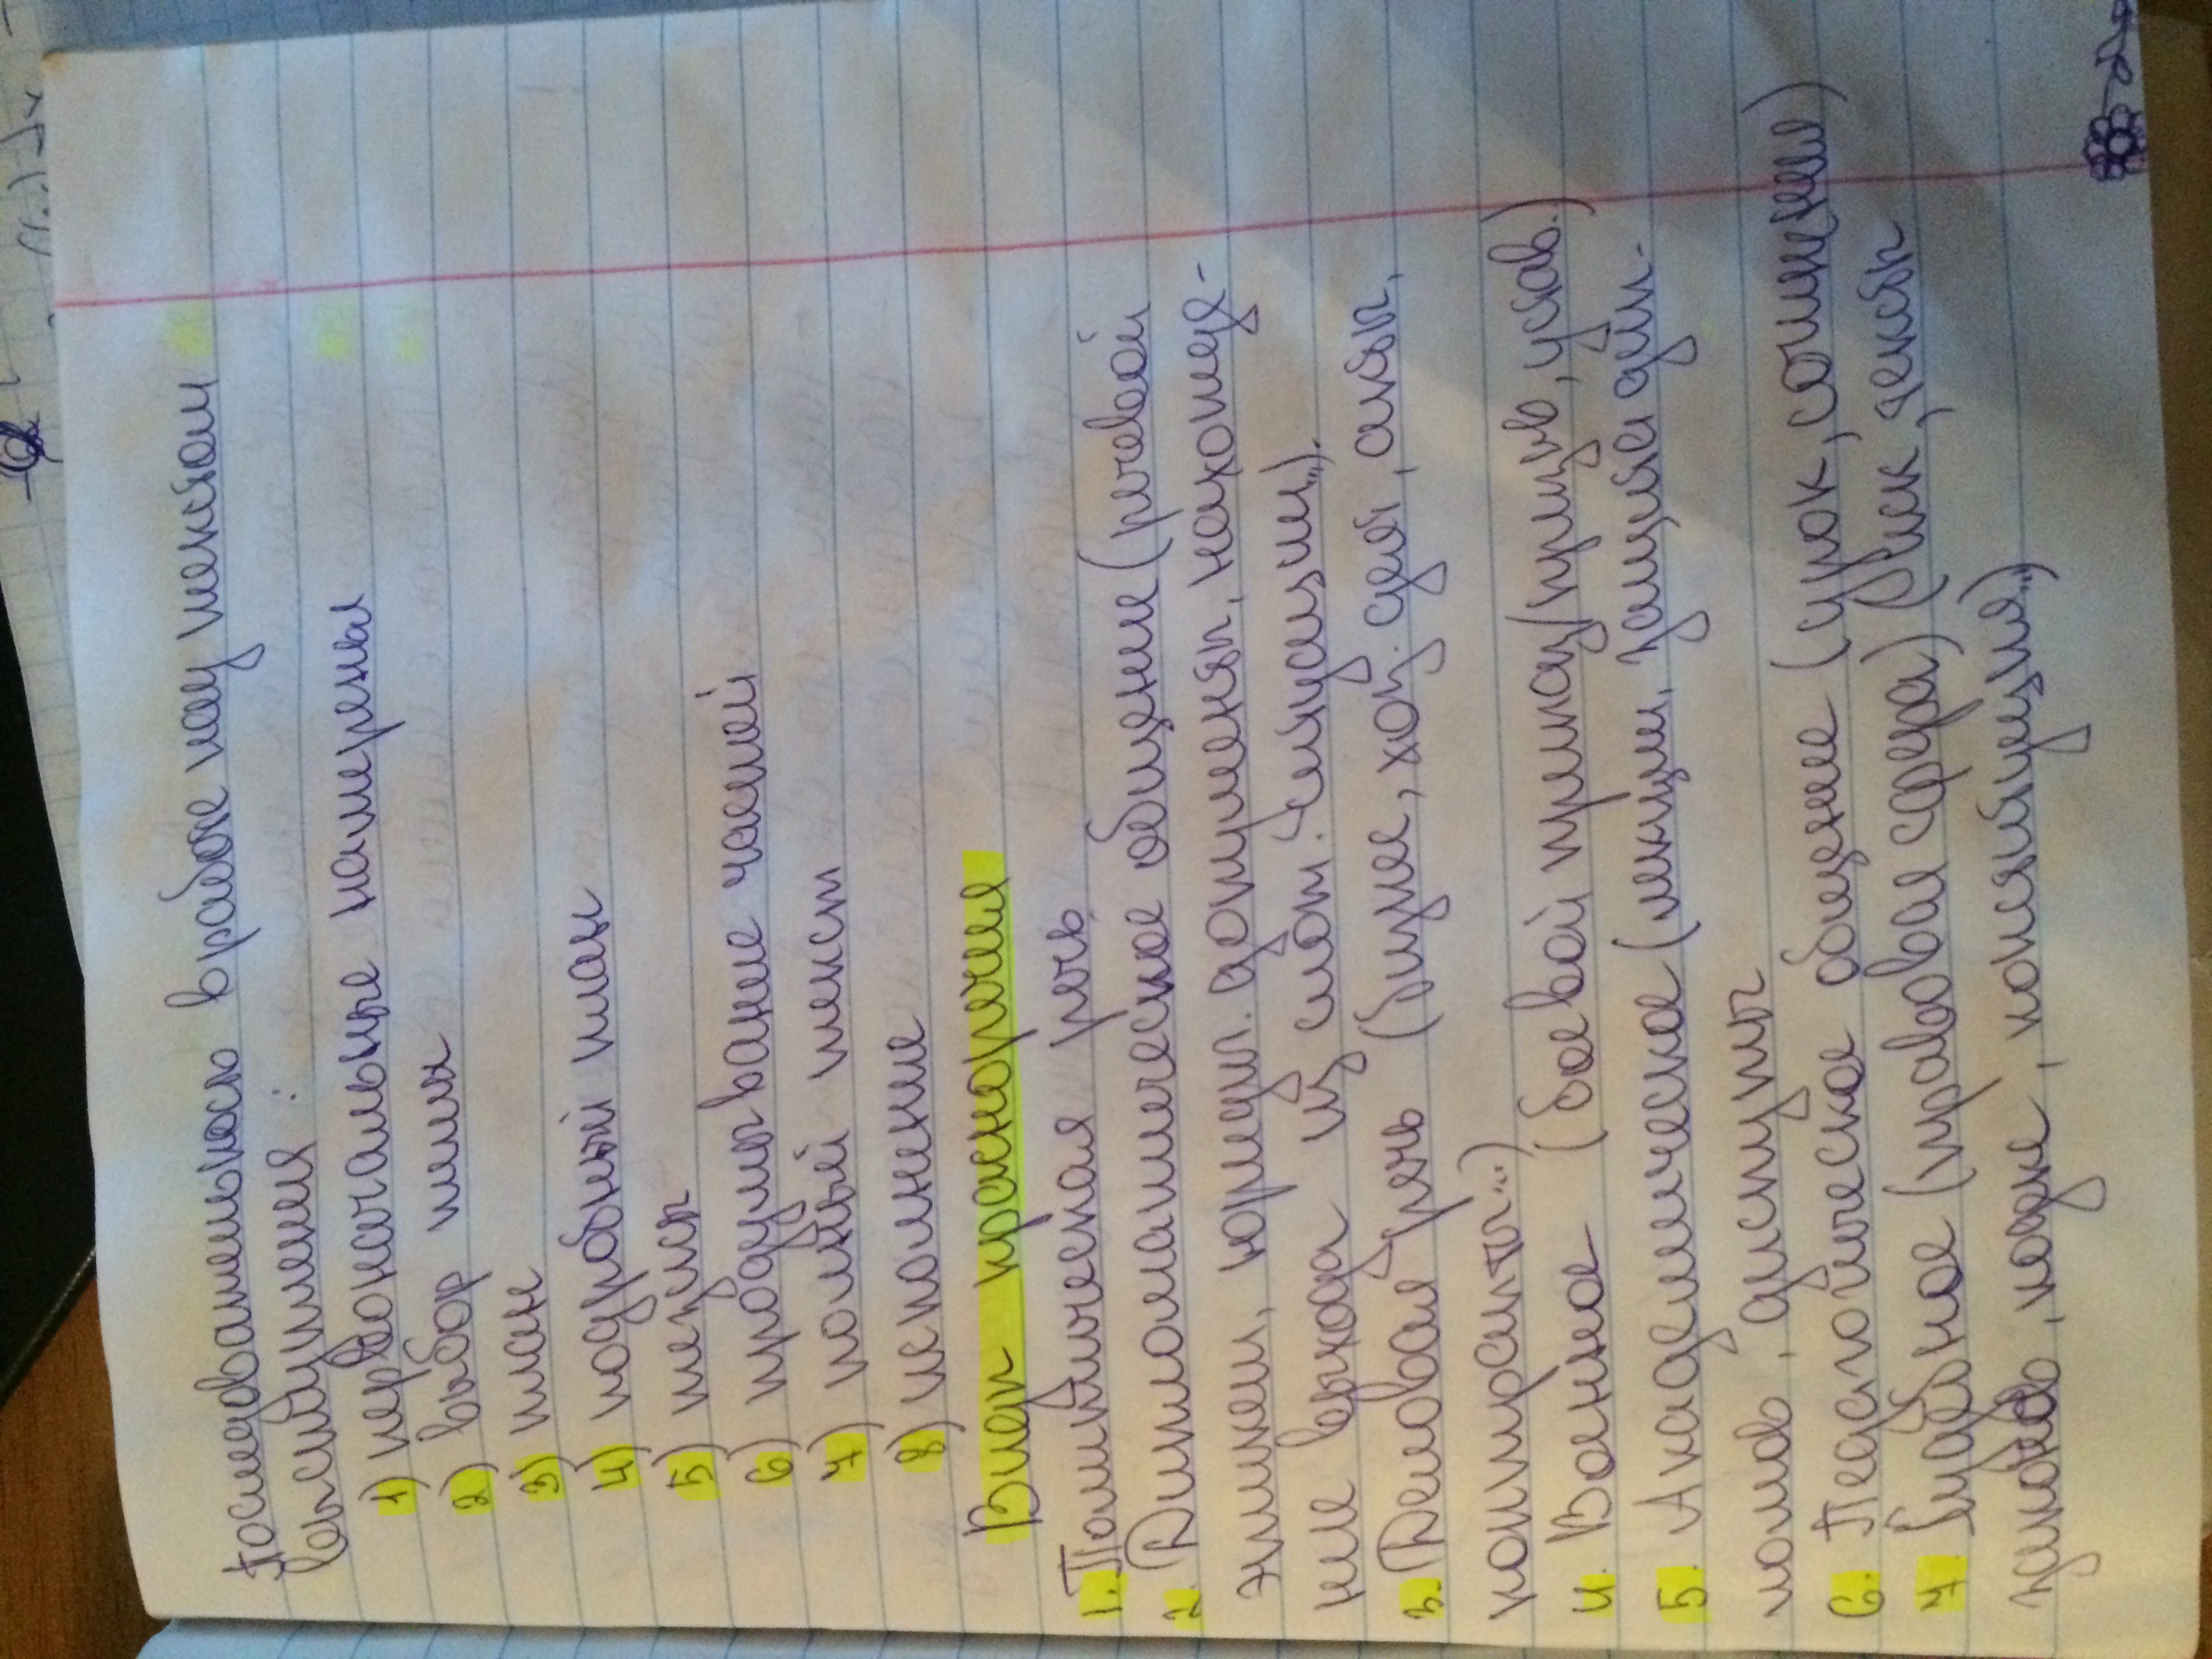 Последовательность в работе над текстом
выступления :
1) первоначальные намеренья
2) выбор темы
3) план
4) подробный план
5) тезисы
6) продумывание частей
7) полный текст
8) исполнение
Виды красноречия
1. Политическая речь
2. Дипломатическое общение (речевой
этикет, юридич. документы, нахожде-
ние выхода из слож. ситуации...).
3. Деловая речь (бизнес, хоз. деят, акты,
контракты...)
4. Военное (боевой приказ/призыв, устав.)
5. Академическое (лекции, защита дип-
ломов, диспуты
6. Педагогическое общение (урок, сочинения)
7. Судебное (правовая сфера) (иск, тексты
законов, кодекс, конституция..)